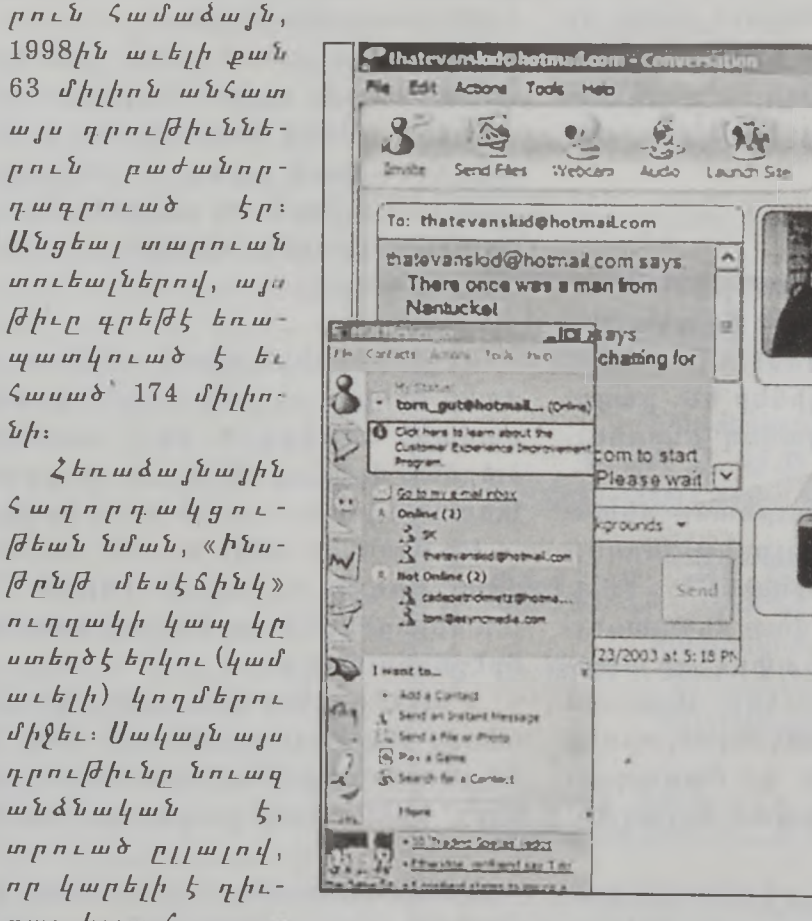 րուն համաձայն,
1998ին աւելի քան
63 միլիոն անհատ
այս դրութիւննե-
րուն բաժանոր-
դագրուած էր:
Անցեալ տարուան
տուեալներով, այս
թիւը գրեթէ եռա-
պատկուած է եւ
հասած՝ 174 միլիո-
նի:
Հեռաձայնային
հաղորդակցու-
թեան նման, «ինս-
թընթ մեսէճինկ»
ուղղակի կապ կը
ստեղծէ երկու (կամ
աւելի) կողմերու
միջեւ: Սակայն այս
դրութիւնը նուազ
անձնական է,
տրուած ըլլալով,
որ կարելի է դիւ-
thatevanskid@hotmail.com - Conversation
File Edit Actions Tools Help
Invite Send Files Webcam Audio Launch Site
To: thatevanskid@hotmail.com
thatevanskid@hotmail.com says
There once was a man from
Nantucket
says
chatting for
com to start
Please wait
kgrounds
Send
23/2003 at 5:18 PM
File Contacts Actions Tools Help
My Status
torn_gut@hotmail... (Online)
Click here to learn about the
Customer Experience Improvement
Program.
Go to my e-mail inbox
Online (2)
SK
thatevanskid@hotmail.com
Not Online (2)
tom@asyncmedia.com
I want to...
Add a Contact
Send an Instant Message
Send a File or Photo
Play a Game
Search for a Contact
More